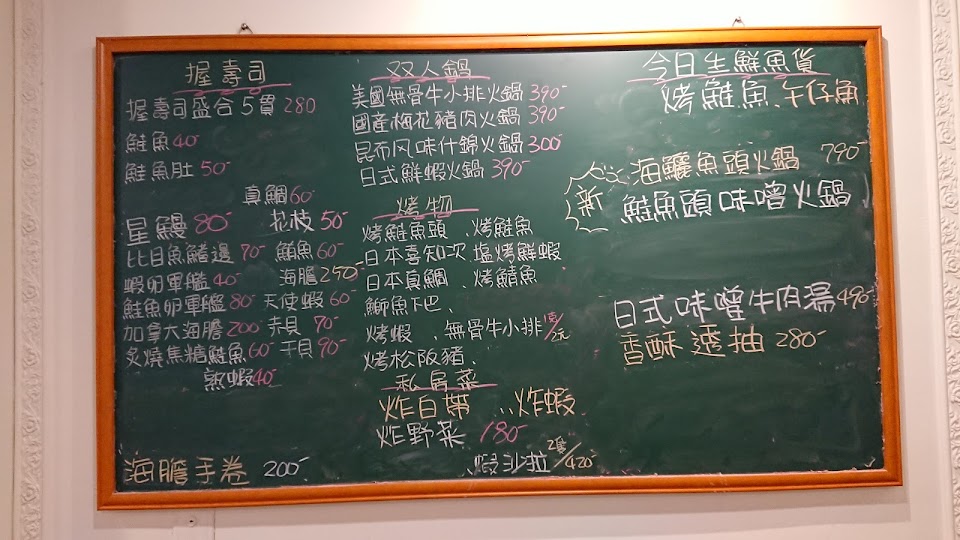 握壽司
握壽司盛合5貫280
鮭魚40-
鮭魚肚50-
真鯛60-
星鰻80- 花枝50-
比目魚鰭邊70- 鰤魚60-
蝦卵軍艦40- 海膽250-
鮭魚卵軍艦80- 天使蝦60-
加拿大海膽200- 赤貝70-
炙燒焦糖鮭魚60- 干貝90-
熟蝦40-
海膽手卷 200-
双人鍋
美國無骨牛小排火鍋390-
國產梅花豬肉火鍋390-
昆布风味什錦火鍋300-
日式鮮蝦火鍋390-
烤物
烤鮭魚頭、烤鮭魚
日本喜知次、塩烤鮮蝦
日本真鯛、烤鯖魚
鰤魚下巴、
烤蝦、無骨牛小排
烤松阪豬、
私房菜
炸白帶、炸蝦
炸野菜 180-
蝦沙拉 /420-
今日生鮮魚貨
烤鮭魚、午仔魚
新
海鱺魚頭火鍋 790-
鮭魚頭味噌火鍋
日式味噌牛肉湯490-
香酥透抽280-